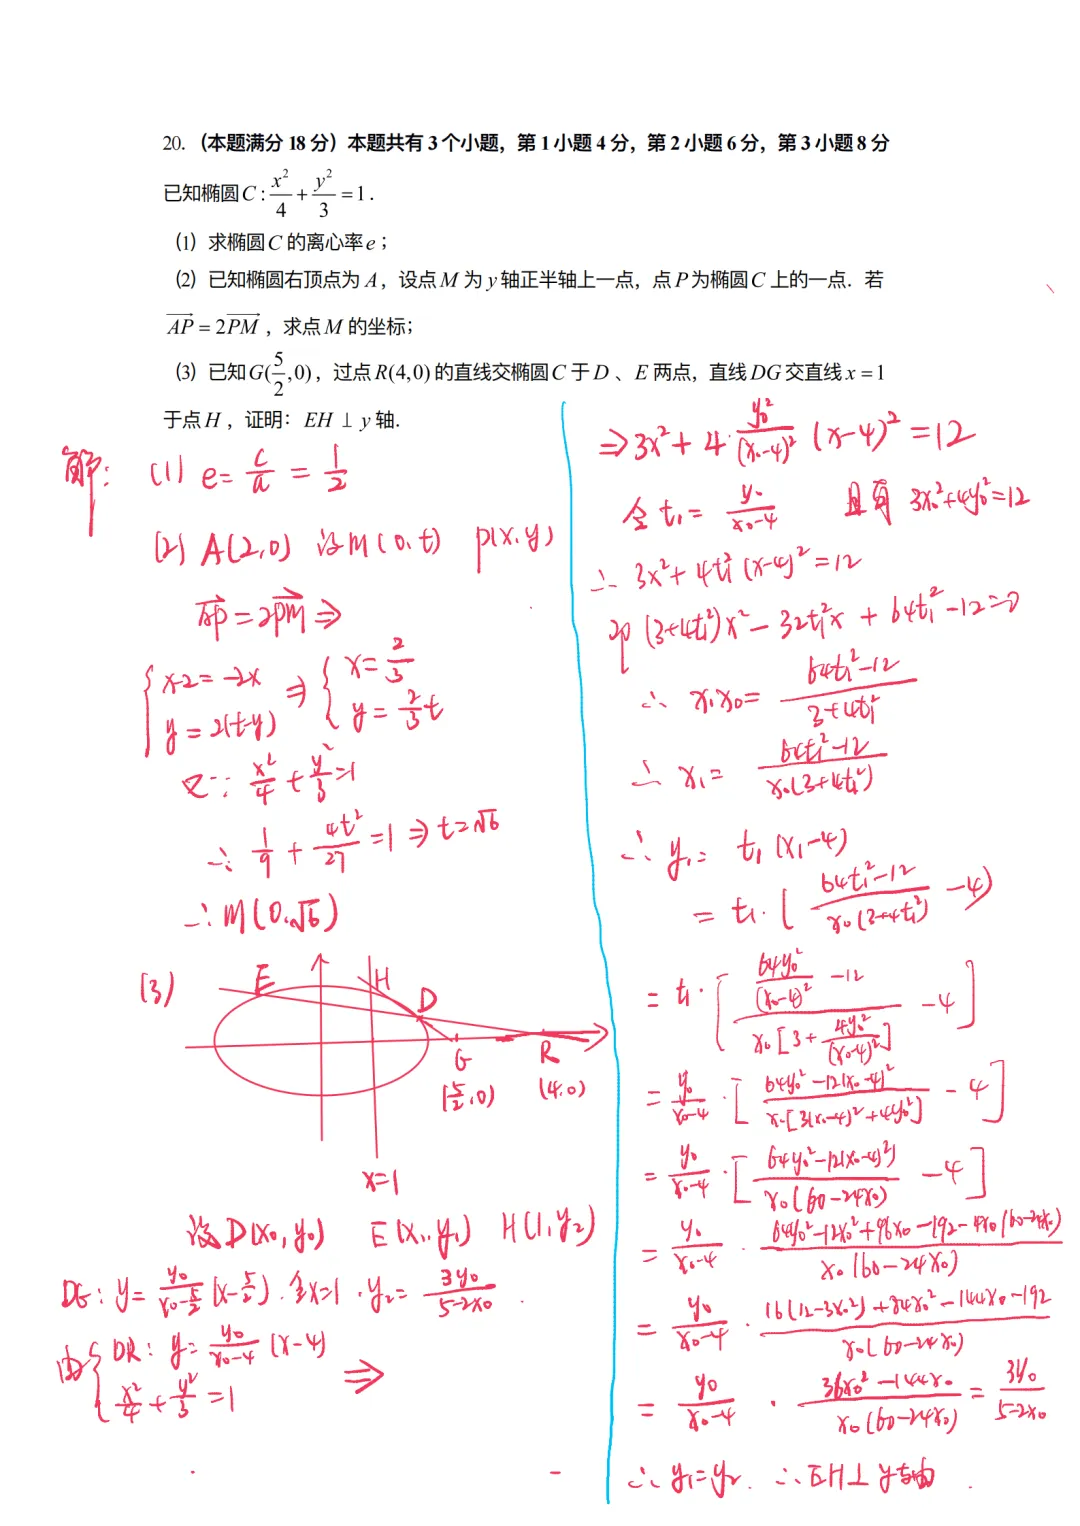 20.（本题满分 18 分）本题共有 3 个小题，第 1 小题 4 分，第 2 小题 6 分，第 3 小题 8 分
已知椭圆 C : x²/4 + y²/3 = 1 .
（1）求椭圆 C 的离心率 e ；
（2）已知椭圆右顶点为 A，设点 M 为 y 轴正半轴上一点，点 P 为椭圆 C 上的一点．若
AP = 2PM ，求点 M 的坐标；
（3）已知 G(5/2,0)，过点 R(4,0) 的直线交椭圆 C 于 D 、E 两点，直线 DG 交直线 x = 1
于点 H ，证明：EH ⊥ y 轴.
解: (1) e = c/a = 1/2
(2) A(2,0) 设M(0,t) P(x,y)
AP = 2PM ⇒
{ x-2 = -2x
y = 2(t-y) ⇒ { x = 2/3
y = 2/3 t
又∵ x²/4 + y²/3 = 1
∴ 1/9 + 4t²/27 = 1 ⇒ t=√6
∴ M(0,√6)
(3)
E H D
G
(5/2,0)
R
(4,0)
x=1
设D(x₀,y₀) E(x₁,y₁) H(1,y₂)
DG: y = y₀/(x₀-5/2) (x-5/2). 令x=1 . y₂ = 3y₀/(5-2x₀) .
由{ DR: y = y₀/(x₀-4) (x-4)
x²/4 + y²/3 = 1 ⇒
⇒ 3x² + 4·y₀²/(x₀-4)² (x-4)² = 12
令 t₁ = y₀/(x₀-4) 且有 3x₀²+4y₀²=12
∴ 3x² + 4t₁² (x-4)² = 12
即 (3+4t₁²)x² - 32t₁²x + 64t₁² - 12 = 0
∴ x₁x₀ = (64t₁²-12)/(3+4t₁²)
∴ x₁ = (64t₁²-12)/(x₀(3+4t₁²))
∴ y₁ = t₁ (x₁-4)
= t₁·( (64t₁²-12)/(x₀(3+4t₁²)) - 4)
= t₁·[ (64y₀²/(x₀-4)² - 12)/(x₀[3+4y₀²/(x₀-4)²]) - 4 ]
= y₀/(x₀-4) ·[ (64y₀²-12(x₀-4)²)/(x₀[3(x₀-4)²+4y₀²]) - 4 ]
= y₀/(x₀-4) ·[ (64y₀²-12(x₀-4)²)/(x₀(60-24x₀)) - 4 ]
= y₀/(x₀-4) · (64y₀²-12x₀²+96x₀-192-4x₀(60-24x₀))/(x₀(60-24x₀))
= y₀/(x₀-4) · (16(12-3x₀²)+84x₀²-144x₀-192)/(x₀(60-24x₀))
= y₀/(x₀-4) · (36x₀²-144x₀)/(x₀(60-24x₀)) = 3y₀/(5-2x₀)
∴ y₁=y₂. ∴ EH⊥y轴 .